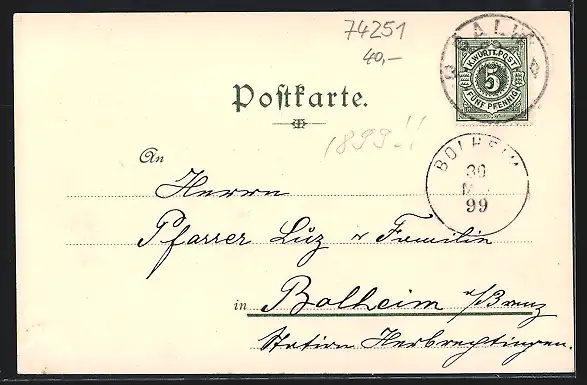 74251
40,-
K.WÜRTT.POST
5
FÜNF PFENNIG
Postkarte.
1899!!
BOLHEIM
30
99
An
Herrn
Pfarrer Luz & Familie
in Bolheim a/Brenz
Station Herbrechtingen.